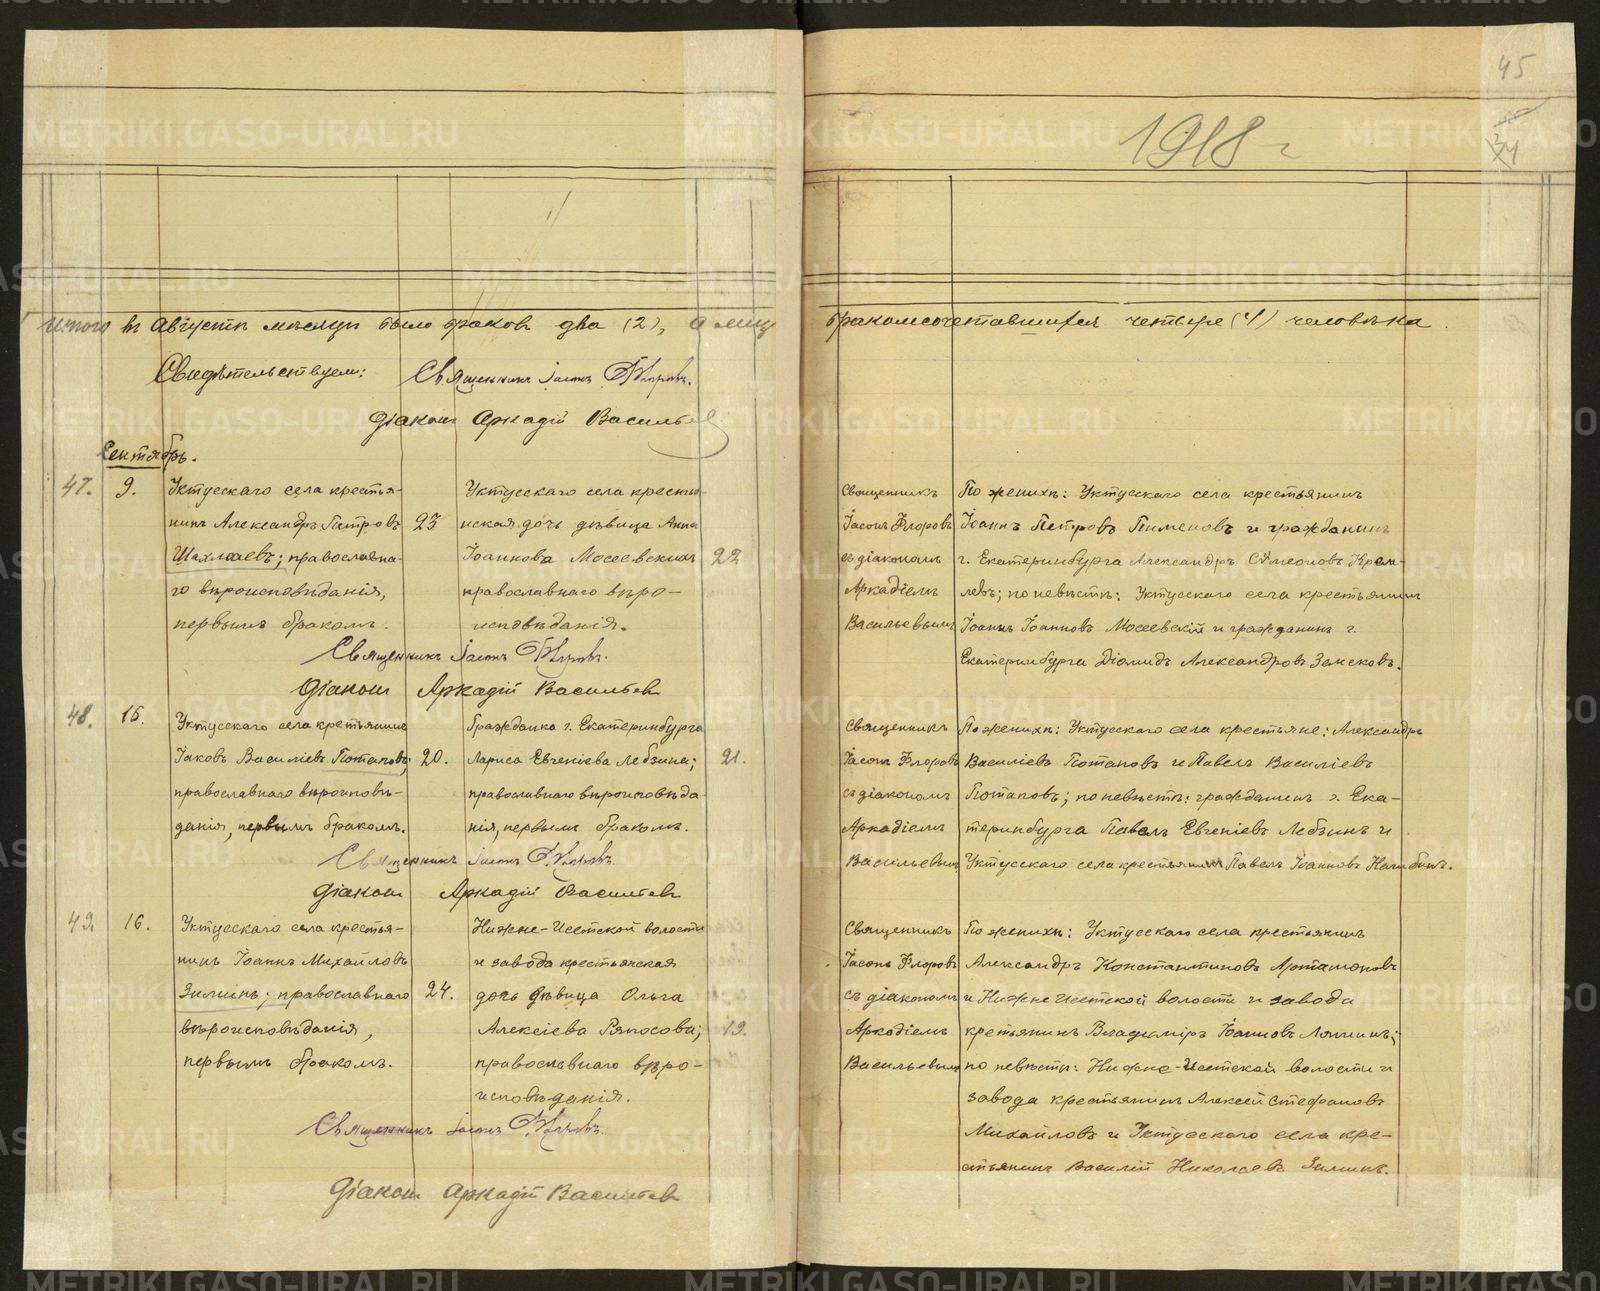 45
34
1918 г
Итого въ Августѣ мѣсяцѣ было браковъ два (2), а лицъ
бракомсочетавшихся четыре (4) человѣка.
Свидѣтельствуемъ: Священникъ Іасонъ Флоровъ.
Діаконъ Аркадій Васильевъ
Сентябрь.
47. 9. Уктусскаго села крестья-
нинъ Александръ Петровъ 23
Шахмаевъ; православна-
го вѣроисповѣданія,
первымъ бракомъ.
Уктусскаго села крестья-
нская дочь дѣвица Анна
Іоаннова Мосеевскихъ 22
православнаго вѣро-
исповѣданія.
Священникъ Іасонъ Флоровъ.
Діаконъ Аркадій Васильевъ
Священникъ
Іасонъ Флоровъ
съ діакономъ
Аркадіемъ
Васильевымъ
По женихѣ: Уктусскаго села крестьянинъ
Іоаннъ Петровъ Пименовъ и гражданинъ
г. Екатеринбурга Александръ Сѵмеоновъ Крем-
левъ; по невѣстѣ: Уктусскаго села крестьянинъ
Іоаннъ Іоанновъ Мосеевскій и гражданинъ г.
Екатеринбурга Діомидъ Александровъ Земсковъ.
48. 15. Уктусскаго села крестьянинъ
Іаковъ Василіевъ Потаповъ; 20.
православнаго вѣроисповѣ-
данія, первымъ бракомъ.
Гражданка г. Екатеринбурга
Лариса Евгеніева Лебзина; 21.
православнаго вѣроисповѣда-
нія, первымъ бракомъ.
Священникъ Іасонъ Флоровъ.
Діаконъ Аркадій Васильевъ
Священникъ
Іасонъ Флоровъ
съ діакономъ
Аркадіемъ
Васильевымъ
По женихѣ: Уктусскаго села крестьяне: Александръ
Василіевъ Потаповъ и Павелъ Василіевъ
Потаповъ; по невѣстѣ: гражданинъ г. Ека-
теринбурга Павелъ Евгеніевъ Лебзинъ и
Уктусскаго села крестьянинъ Павелъ Іоанновъ Нагибинъ.
49. 16. Уктусскаго села крестья-
нинъ Іоаннъ Михайловъ
Зиминъ; православнаго 24.
вѣроисповѣданія,
первымъ бракомъ.
Нижне-Исетской волости
и завода крестьянская
дочь дѣвица Ольга
Алексіева Ряпосова; 19.
православнаго вѣро-
исповѣданія.
Священникъ Іасонъ Флоровъ.
Діаконъ Аркадій Васильевъ
Священникъ
Іасонъ Флоровъ
съ діакономъ
Аркадіемъ
Васильевымъ
По женихѣ: Уктусскаго села крестьянинъ
Александръ Константиновъ Артамоновъ
и Нижне Исетской волости и завода
крестьянинъ Владиміръ Іоанновъ
по невѣстѣ: Нижне-Исетской волости и
завода крестьянинъ Алексѣй Стефановъ
Михайловъ и Уктусскаго села кре-
стьянинъ Василій Николаевъ Зиминъ.
METRIKI.GASO-URAL.RU